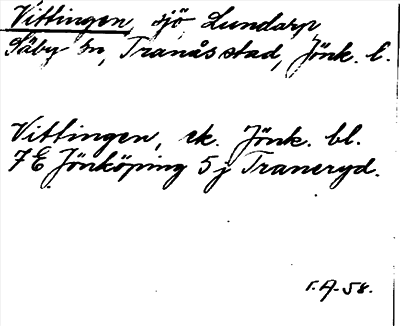 Vittingen, sjö, Lundarp,
Säby sn, Tranås stad, Jönk. l.
Vittingen, ek. Jönk. bl.
7E Jönköping 5j Traneryd.
r.A-58.